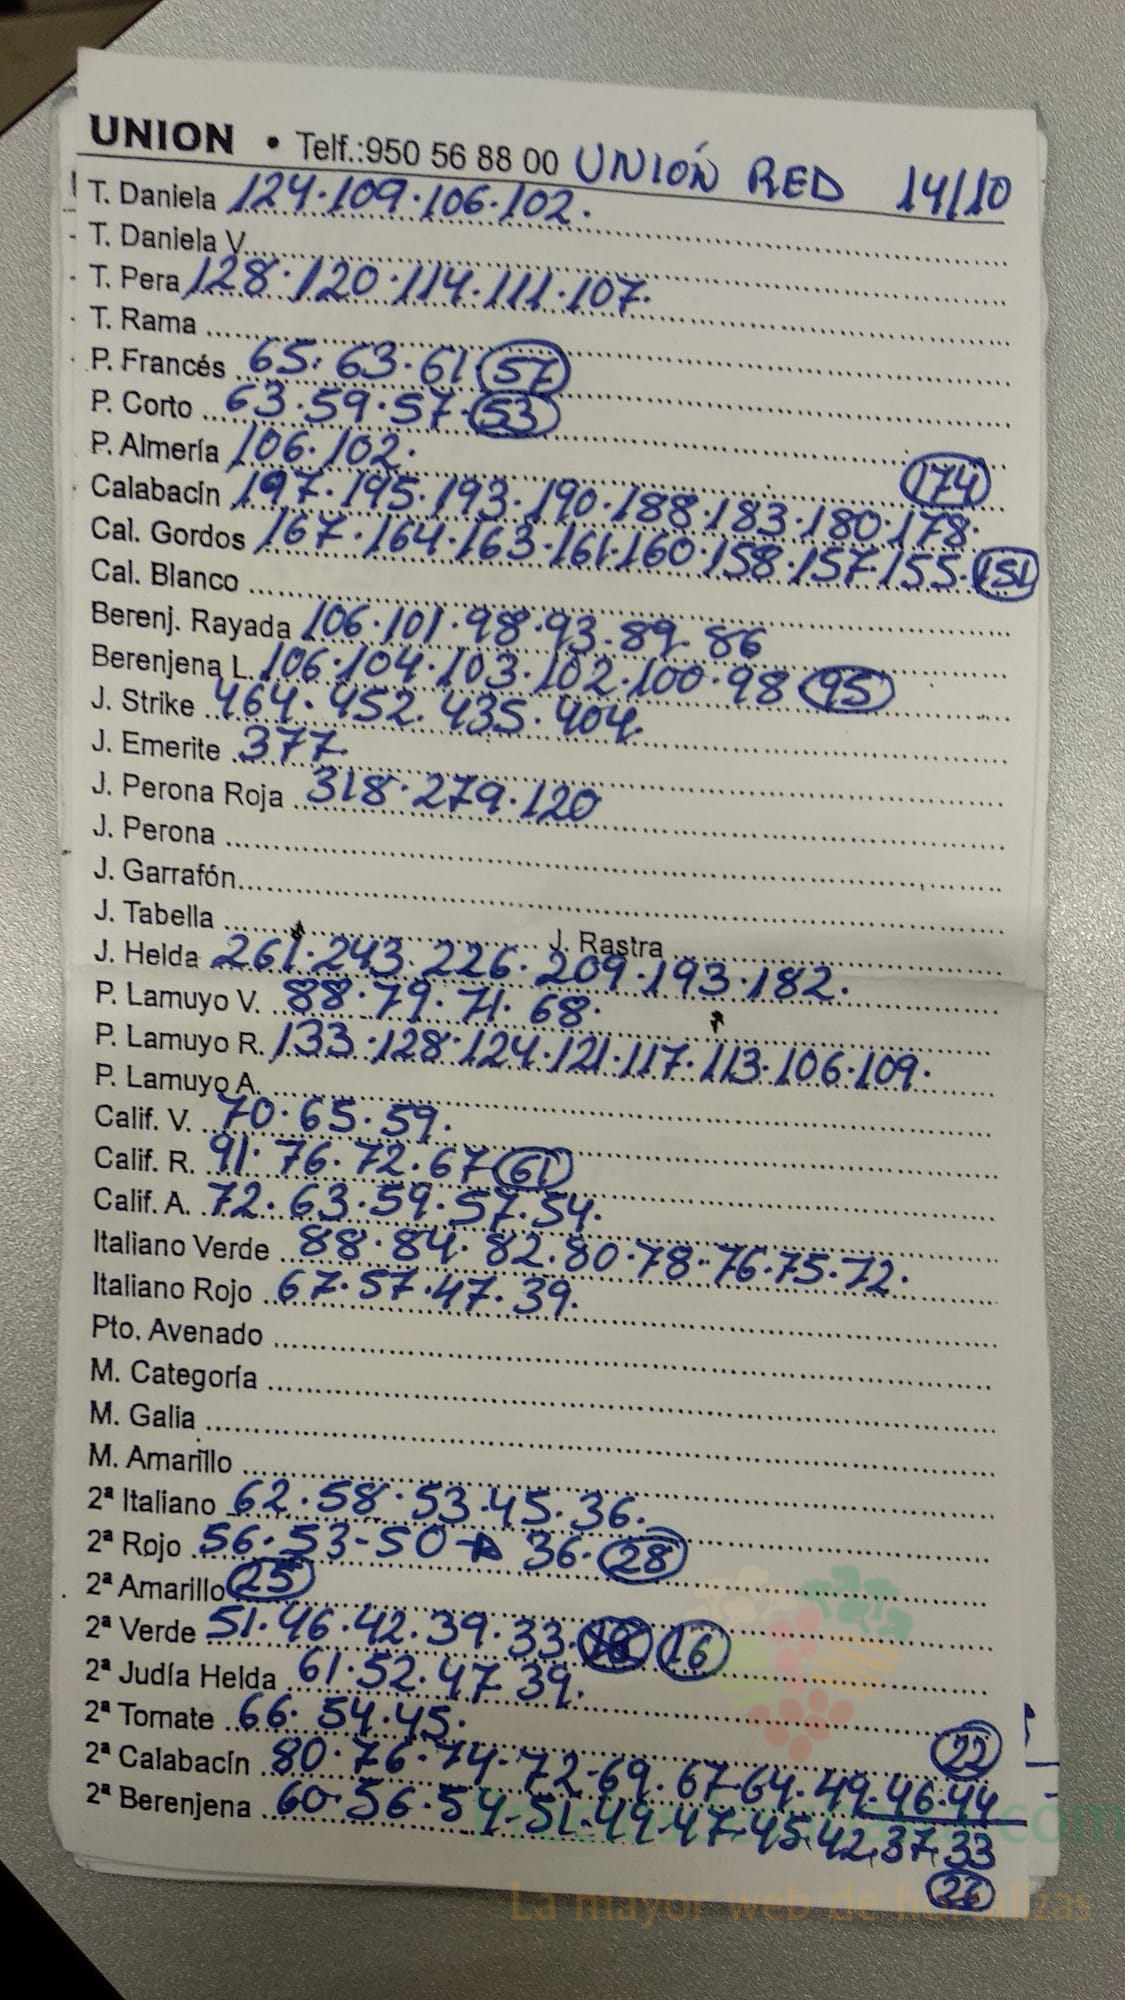 UNION • Telf.:950 56 88 00 UNIÓN RED 14/10
T. Daniela 124.109.106.102.
T. Daniela V.
T. Pera 128.120.114.111.107.
T. Rama
P. Francés 65.63.61 57
P. Corto 63.59.57.53
P. Almería 106.102.
174
Calabacín 197.195.193.190.188.183.180.178.
Cal. Gordos 167.164.163.161.160.158.157.155.151
Cal. Blanco
Berenj. Rayada 106.101.98.93.89.86
Berenjena L. 106.104.103.102.100.98 95
J. Strike 464.452.435.404.
J. Emerite 377
J. Perona Roja 318.279.120
J. Perona
J. Garrafón
J. Tabella J. Rastra
J. Helda 261.243.226.209.193.182.
P. Lamuyo V. 88.79.71.68.
P. Lamuyo R. 133.128.124.121.117.113.106.109.
P. Lamuyo A.
Calif. V. 70.65.59.
Calif. R. 91.76.72.67 61
Calif. A. 72.63.59.57.54.
Italiano Verde 88.84.82.80.78.76.75.72.
Italiano Rojo 67.57.47.39.
Pto. Avenado
M. Categoría
M. Galia
M. Amarillo
2ª Italiano 62.58.53.45.36.
2ª Rojo 56.53-50 → 36.28
2ª Amarillo 25
2ª Verde 51.46.42.39.33. 16
2ª Judía Helda 61.52.47 39.
2ª Tomate 66.54.45.
22
2ª Calabacín 80.76.74-72-69.67-64.49.46.44
2ª Berenjena 60.56.54.51.49.47.45.42.37.33
26
La mayor web de hortalizas